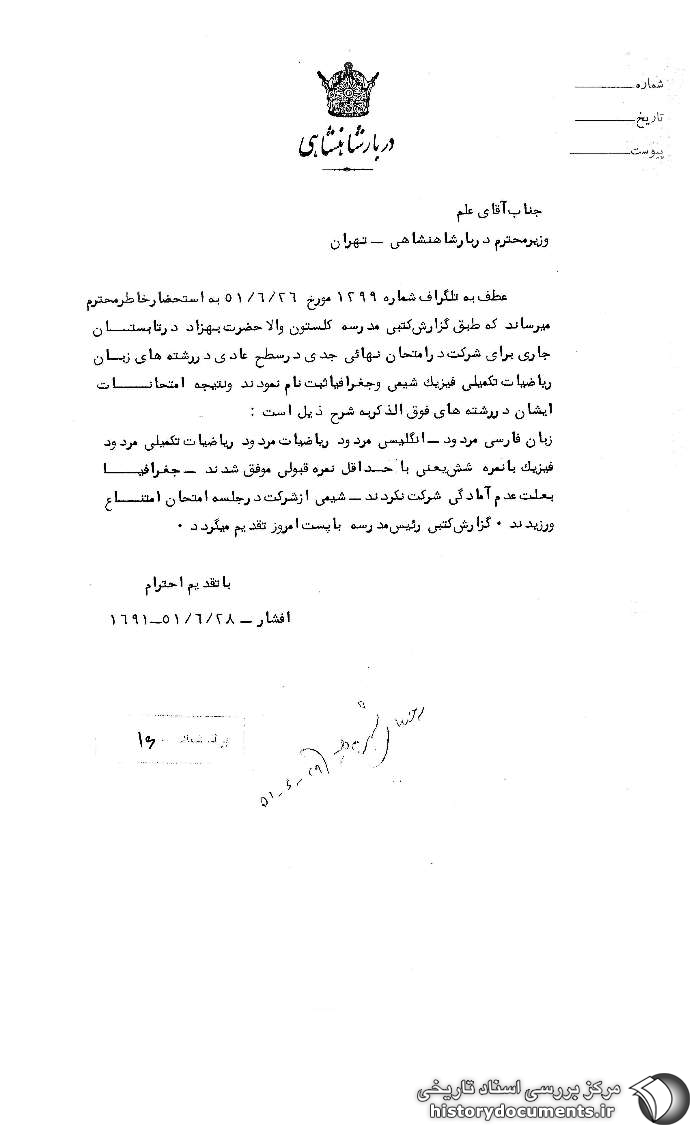 شماره
تاریخ
پیوست
دربار شاهنشاهی
جناب آقای علم
وزیر محترم دربار شاهنشاهی ـ تهران
عطف به تلگراف شماره ۱۲۹۹ مورخ ۵۱/۶/۲۶ به استحضار خاطر محترم
میرساند که طبق گزارش کتبی مدرسه کلستون والا حضرت بهزاد در تابستان
جاری برای شرکت در امتحان نهائی جدی در سطح عادی در رشته های زبان
ریاضیات تکمیلی فیزیک شیمی و جغرافیا ثبت نام نمودند و نتیجه امتحانات
ایشان در رشته های فوق الذکر به شرح ذیل است :
زبان فارسی مردود ـ انگلیسی مردود ریاضیات مردود ریاضیات تکمیلی مردود
فیزیک با نمره شش یعنی با حداقل نمره قبولی موفق شدند ـ جغرافیا
بعلت عدم آمادگی شرکت نکردند ـ شیمی از شرکت در جلسه امتحان امتناع
ورزیدند ۰ گزارش کتبی رئیس مدرسه با پست امروز تقدیم میگردد ۰
با تقدیم احترام
افشار ـ ۵۱/۶/۲۸ـ۱۶۹۱
۵۱-۶-۲۹
۱۶
مرکز بررسی اسناد تاریخی
historydocuments.ir